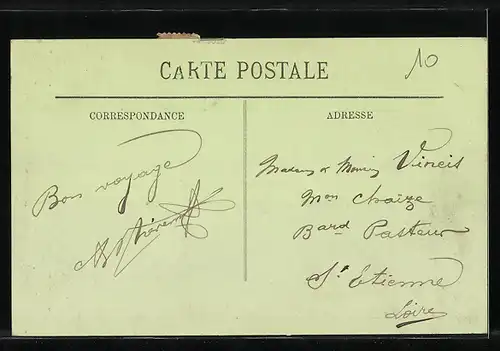 10
CARTE POSTALE
CORRESPONDANCE
Bon voyage
ADRESSE
Madame & Monsieur Vineis
Mon Chaize
Bard Pasteur
St Etienne
Loire